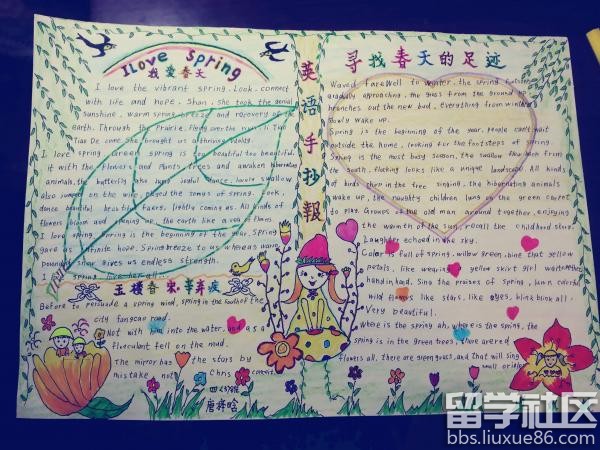 I Love Spring
我爱春天
I love the vibrant spring. Look. connect
with life and hope. Shan, she took the
sunshine, warm spring breeze and recovery of the
earth. Through the Prairie, flying over the
I love spring. Green spring is too beautiful too beautiful.
it with the flowers and plants trees and awaken hibernating
dance beautiful
flowers bloom and opening up, the earth like a sea of flowers
I love spring. Spring is the beginning of the year. Spring
gave us infinite hope. Spring breeze to us whereas warm
gives us endless strength.
I spring love her all...
Before to persuade a spring wind, spring in the south of the
city fangcao road.
Not with him into the water, and as a
flocculent fell on the mud.
The mirror has the stars by
mistake, not Chris content.
英语手抄報
寻找春天的足迹
Waved farewell to winter, the spring footsteps
gradually approaching, the grass from the ground up
branches out the new bud, everything from winter
slowly wake up.
Spring is the beginning of the year, people can't wait
outside the home, looking for the footsteps of spring.
Spring is the most busy season, the swallow flew back from
flocking looks like a unique landscape. All kinds
of birds chirp in the tree singing, the hibernating animals
wake up, the naughty children lung on the green carpet
to play. Groups of the old man around together, enjoying
the warmth of the sun, recall the childhood story.
Laughter echoed in the sky.
Color full of spring, willow green, bine that yellow
petals, like wearing yellow skirt girl
hand in hand, Sing the praises of spring, colorful
wild flowers like stars, like eyes, blink blink all.
Very beautiful.
Where is the spring ah, where is the spring, the
spring is in the green trees, there are red
flowers all, there are green grass, and that will sing
small oriole.
留学社区
bbs.liuxue86.com